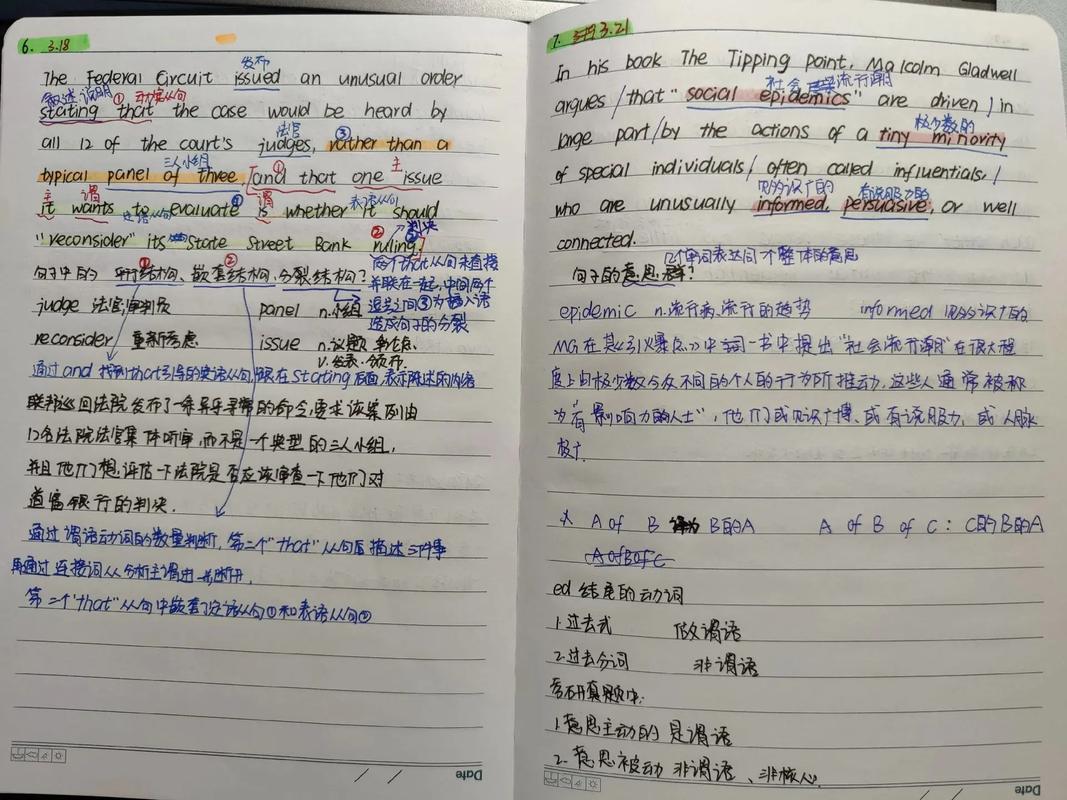 6. 3.18
发布
The Federal Circuit issued an unusual order
陈述说明 ① 宾语从句
stating that the case would be heard by
法官 ③
all 12 of the court's judges, rather than a
三人小组 ① 主
typical panel of three, and that one issue
主 谓 定语从句 谓 表语从句
it wants to evaluate is whether it should
② 判决
"reconsider" its State Street Bank ruling.
句子中的 平行结构、嵌套结构、分裂结构?
两个that从句未直接
并联在一起,中间两个
逗号之间③为插入语
造成句子的分裂
judge 法官,审判员 panel n.小组
reconsider 重新考虑 issue n.议题
v.发表.颁布
通过and 找到that引导的宾语从句,跟在stating后面,表示陈述的内容
联邦巡回法院发布了一条异乎寻常的命令,要求该案例由
12名法院法官集体听审,而不是一个典型的三人小组,
并且他们想评估一下法院是否应该审查一下他们对
道富银行的判决.
通过谓语动词的数量判断,第二个"that"从句后描述
再通过连接词从分析主谓进一步断开,
第二个"that"从句中嵌套了定语从句①和表语从句②
Date
7. 3.21
In his book The Tipping Point, Malcolm Gladwell
社会 流行潮
argues / that "social epidemics" are driven / in
极少数的
large part / by the actions of a tiny minority
of special individuals / often called influentials, /
见多识广的 有说服力的
who are unusually informed, persuasive, or well
connected.
几个单词表达同一个整体的意思
句子的意思群?
epidemic n.流行病,流行的趋势 informed 见多识广的
MG在其《引爆点》中一书中提出"社会流行潮"在很大程
度上由极少数与众不同的个人的行为所推动,这些人通常被称
为"有影响力的人士",他们或见识广博、或有说服力,或人脉
极广.
A of B 译为 B的A A of B of C : C的B的A
A of B of C
ed 结尾的动词
1.过去式 做谓语
2.过去分词 非谓语
考研真题中:
1.意思主动的 是谓语
2.意思被动 非谓语、非核心
Date